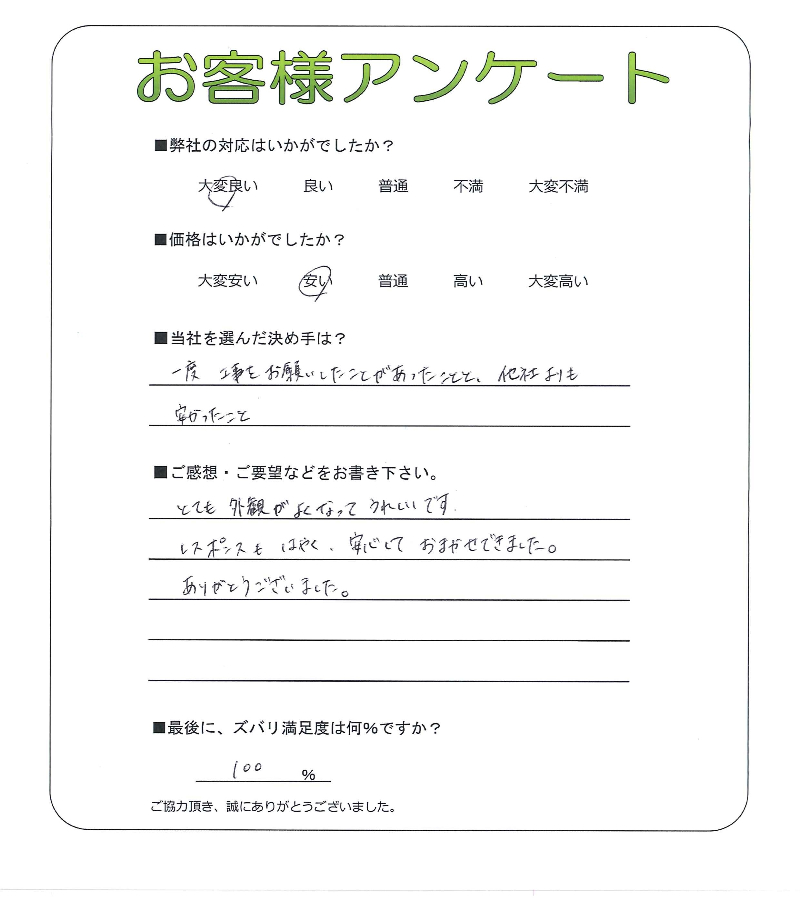 お客様アンケート
■弊社の対応はいかがでしたか？
大変良い 良い 普通 不満 大変不満
■価格はいかがでしたか？
大変安い 安い 普通 高い 大変高い
■当社を選んだ決め手は？
一度 工事をお願いしたことがあったことと、他社よりも
安かったこと
■ご感想・ご要望などをお書き下さい。
とても 外観がよくなって うれしいです.
レスポンスも はやく、安心して おまかせできました。
ありがとうございました。
■最後に、ズバリ満足度は何%ですか？
100 %
ご協力頂き、誠にありがとうございました。